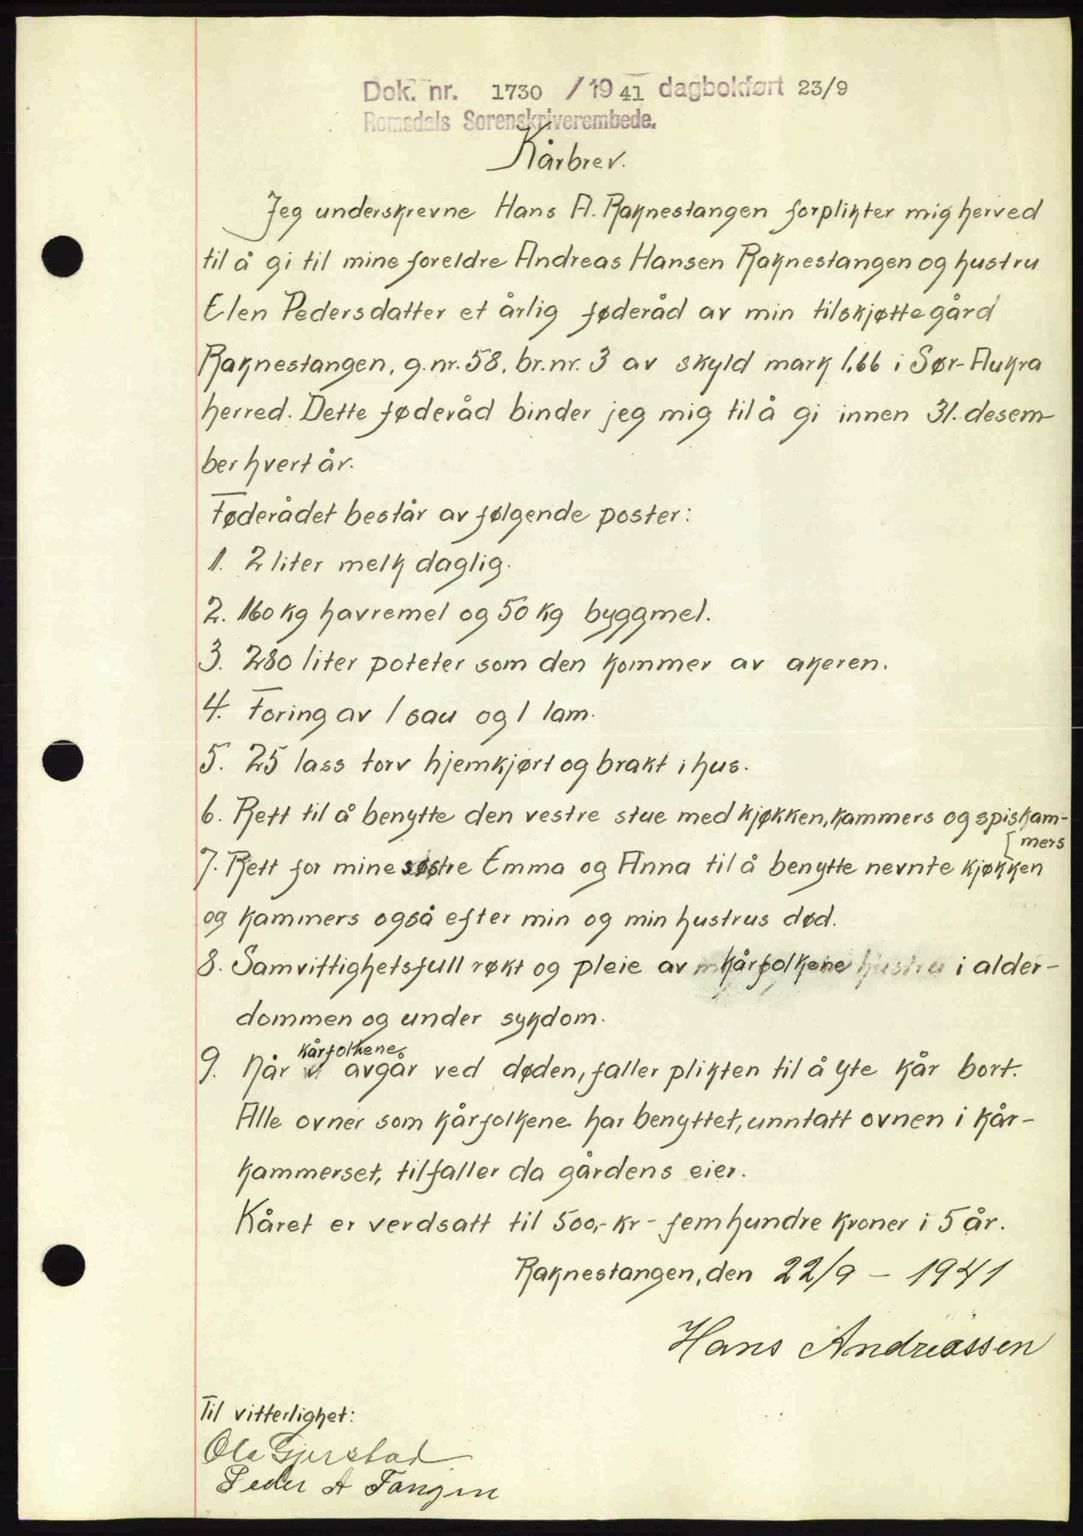 Dok. nr. 1730 / 19 41 dagbokført 23/9
Romsdals Sorenskriverembede.
Kårbrev.
Jeg underskrevne Hans A. Raknestangen forplikter mig herved
til å gi til mine foreldre Andreas Hansen Raknestangen og hustru
Elen Pedersdatter et årlig føderåd av min tilskjøtte gård
Raknestangen, g.nr. 58, br.nr. 3 av skyld mark 1,66 i Sør-Aukra
herred. Dette føderåd binder jeg mig til å gi innen 31. desem-
ber hvert år.
Føderådet består av følgende poster:
1. 2 liter melk daglig.
2. 160 kg havremel og 50 kg byggmel.
3. 280 liter poteter som den kommer av akeren.
4. Foring av 1 sau og 1 lam.
5. 25 lass torv hjemkjørt og brakt i hus.
6. Rett til å benytte den vestre stue med kjøkken, kammers og spiskam-
[mers
7. Rett for mine søstre Emma og Anna til å benytte nevnte kjøkken
og kammers også efter min og min hustrus død.
8. Samvittighetsfull røkt og pleie av kårfolkene i alder-
dommen og under sykdom.
kårfolkene
9. Når avgår ved døden, faller plikten til å yte kår bort.
Alle ovner som kårfolkene har benyttet, unntatt ovnen i kår-
kammerset, tilfaller da gårdens eier.
Kåret er verdsatt til 500,- kr - femhundre kroner i 5 år.
Raknestangen, den 22/9 - 1941
Hans Andreassen
Til vitterlighet:
Ola Gjerstad
Peder A Tangen